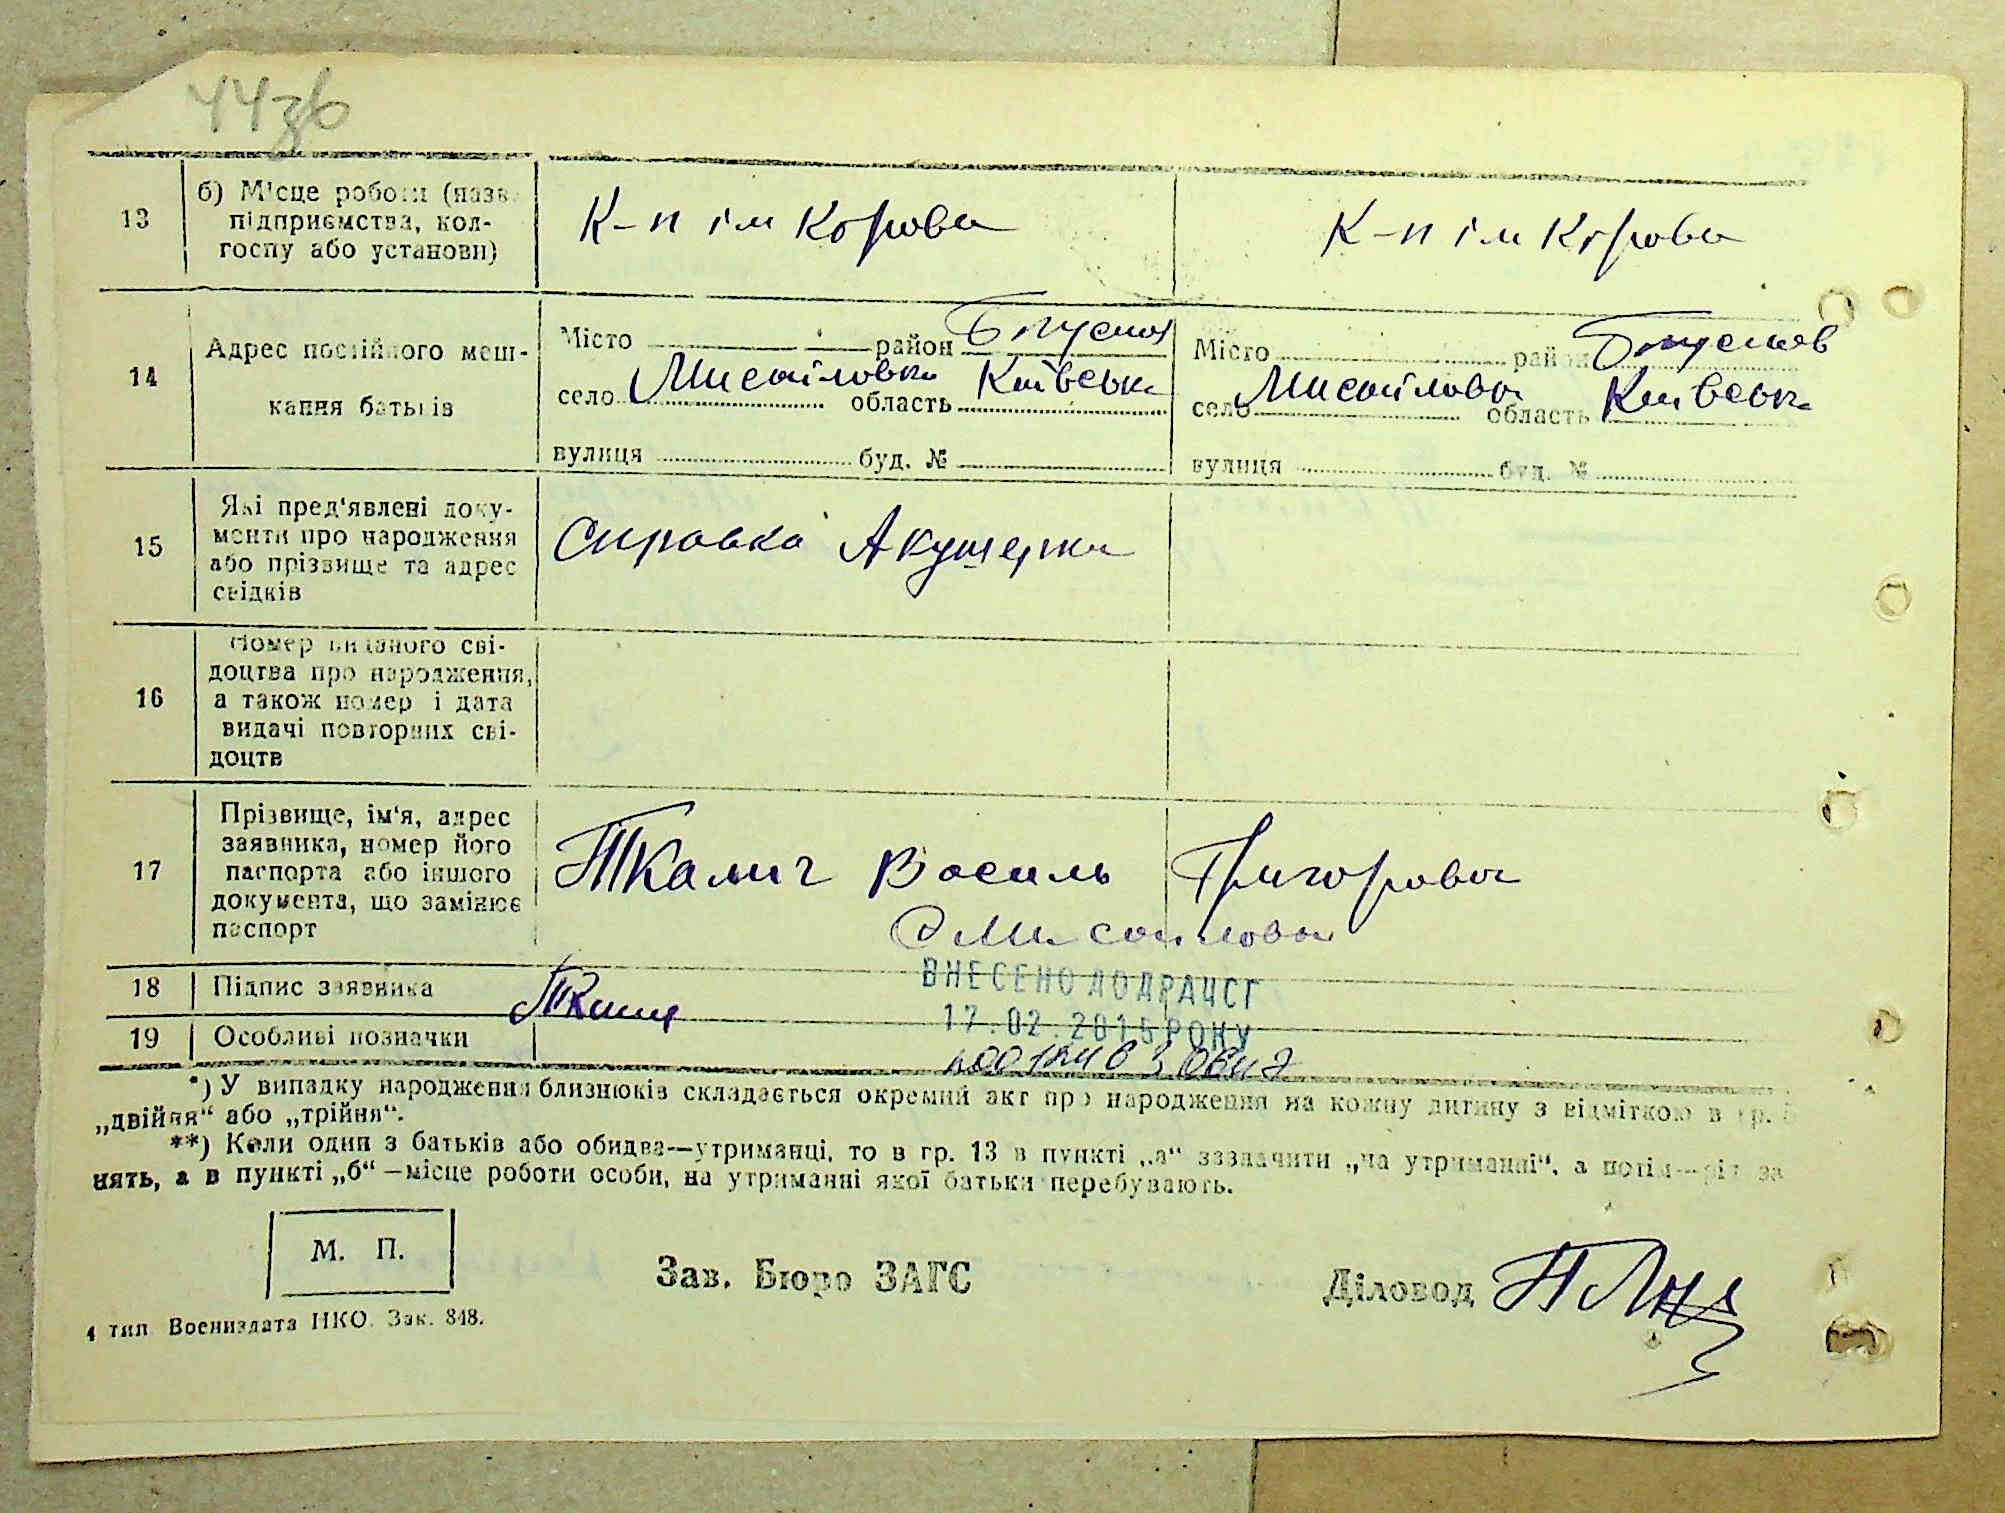 44зв
13
б) Місце роботи (назв
підприємства, кол-
госпу або установи)
К-п ім Кірова
К-п ім Кірова
14
Адрес постійного меш-
кання батьків
Місто район Богуслав
село Мисайловка область Київська
вулиця буд. №
Місто район Богуслав
село Мисайловка область Київська
вулиця буд. №
15
Які пред'явлені доку-
менти про народження
або прізвище та адрес
свідків
Справка Акушерки
16
Номер виданого сві-
доцтва про народження,
а також номер і дата
видачі повторних сві-
доцтв
17
Прізвище, ім'я, адрес
заявника, номер його
паспорта або іншого
документа, що замінює
паспорт
Ткалич Василь Григорович
с Мисайловка
18
Підпис заявника
19
Особливі позначки
ВНЕСЕНО ДО ДРАЦСГ
17.02.2015 РОКУ
*) У випадку народження близнюків складається окремий акт про народження на кожну дитину з відміткою в гр. 5
„двійня“ або „трійня“.
**) Коли один з батьків або обидва—утриманці, то в гр. 13 в пункті „а“ зазначити „на утриманні“, а потім—рід за
нять, а в пункті „б“—місце роботи особи, на утриманні якої батьки перебувають.
М. П.
Зав. Бюро ЗАГС
Діловод
4 тип Воениздата НКО. Зак. 848.